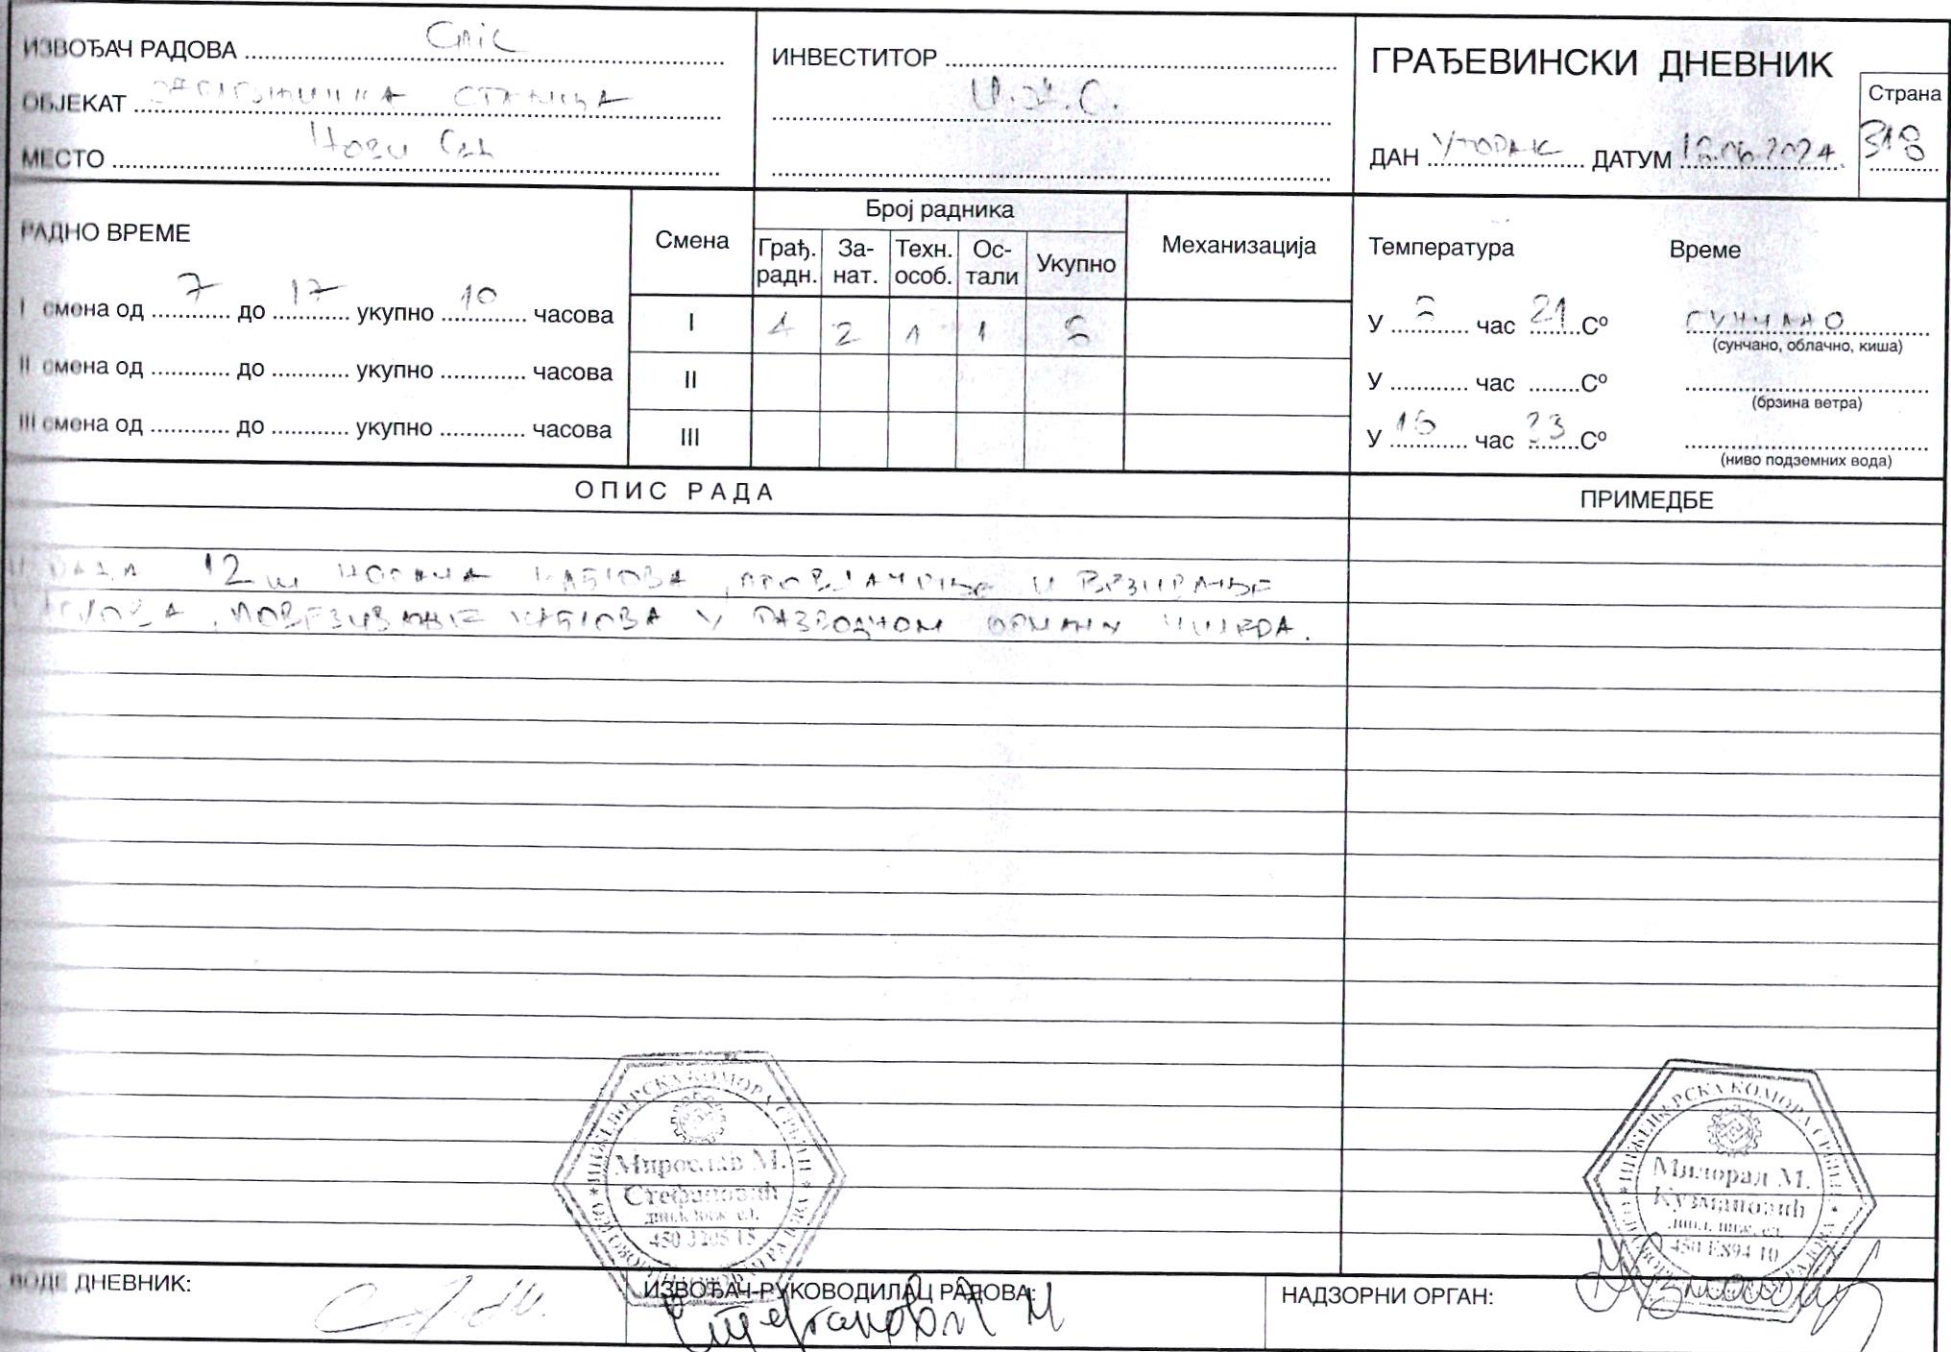 ИЗВОЂАЧ РАДОВА
ОБЈЕКАТ СТАНИЦА
МЕСТО Нови Сад
ИНВЕСТИТОР
И.Ж.С.
ГРАЂЕВИНСКИ ДНЕВНИК
Страна
318
ДАН УТОРАК ДАТУМ 18.06.2024.
РАДНО ВРЕМЕ
I смена од 7 до 17 укупно 10 часова
II смена од до укупно часова
III смена од до укупно часова
Смена
Број радника
Грађ. радн.
За-нат.
Техн. особ.
Ос-тали
Укупно
Механизација
I 4 2 1 1 8
II
III
Температура Време
У 8 час 21 C° СУНЧАНО
(сунчано, облачно, киша)
У час C°
(брзина ветра)
У час 23 C°
(ниво подземних вода)
ОПИС РАДА
ПРИМЕДБЕ
12 НОСАЧА КАБЛОВА, ПРОВЛАЧЕЊЕ И ВЕЗИВАЊЕ
КАБЛОВА, ПОВЕЗИВАЊЕ КАБЛОВА У РАЗВОДНОМ ОРМАНУ ЧИЛЕРА.
ИНЖЕЊЕРСКА КОМОРА СРБИЈЕ
Мирослав М.
Стефановић
дипл. инж. ел.
ИНЖЕЊЕРСКА КОМОРА СРБИЈЕ
Милорад М.
Кузмановић
дипл. инж. ел.
ВОДЕ ДНЕВНИК:
ИЗВОЂАЧ-РУКОВОДИЛАЦ РАДОВА:
Стефановић М
НАДЗОРНИ ОРГАН: